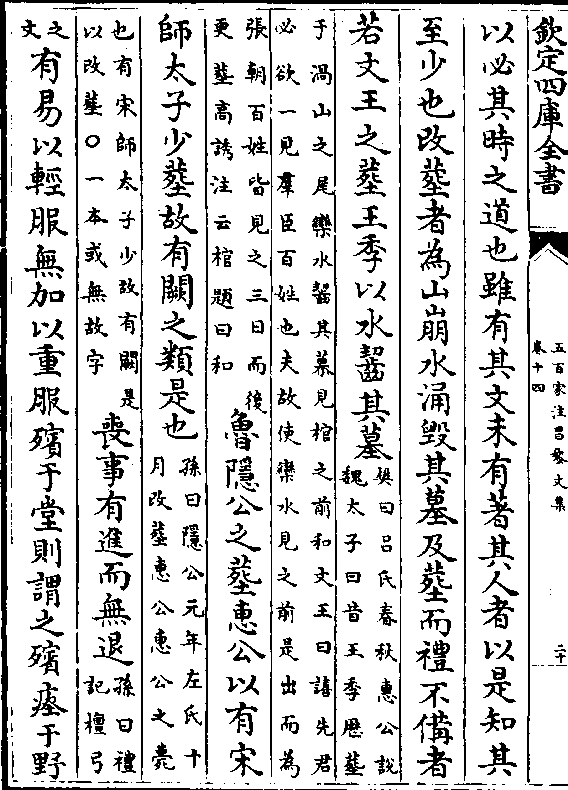 欽定四庫全書
五百家注昌黎文集
卷十四
二十
以必其時之道也雖有其文未有著其人者以是知其
至少也改葬者為山崩水涌毀其墓及葬而禮不備者
若文王之葬王季以水齧其墓
樊曰吕氏春秋惠公說
魏太子曰昔王季歴葬
于渦山之尾欒水齧其墓見棺之前和文王曰譆先君
必欲一見羣臣百姓也夫故使欒水見之前是出而為
張朝百姓皆見之三日而後
更葬高誘注云棺題曰和
魯隱公之葬惠公以有宋
師太子少葬故有闕之類是也
孫曰隱公元年左氏十
月改葬惠公惠公之薨
也有宋師太子少故有闕是
以改葬○一本或無故字
喪事有進而無退
孫曰禮
記檀弓
之
文
有易以輕服無加以重服殯于堂則謂之殯瘞于野